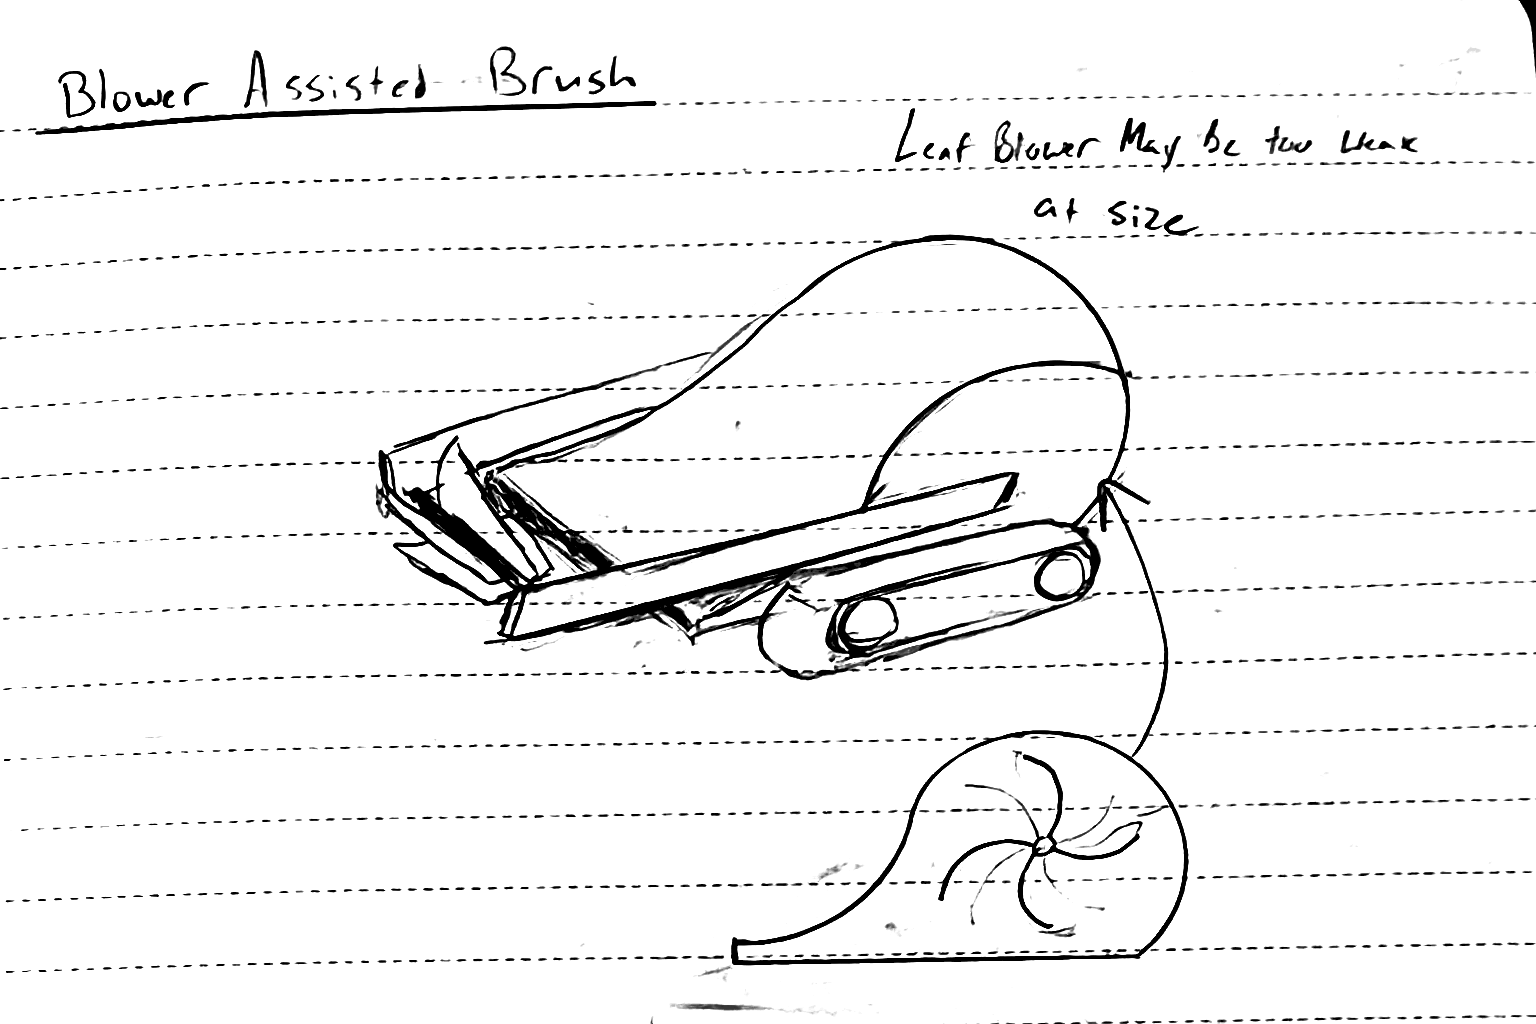 Blower Assisted Brush
Leaf Blower May be too weak
at size